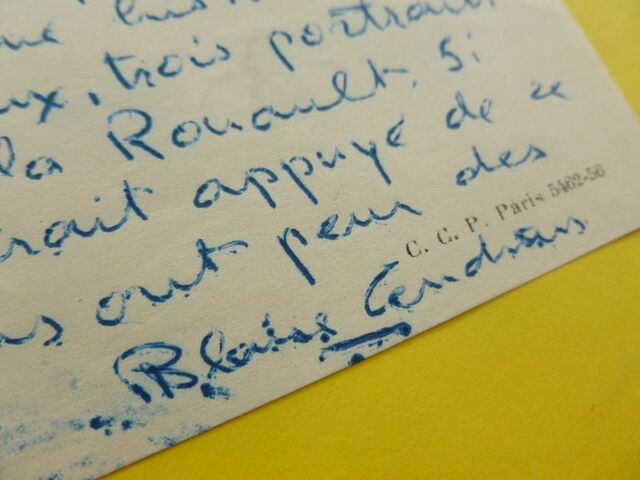 trois portraits
la Rouault. Si
appuyé de ce
ont peur des
C. C. P. Paris 5462-56
Blaise Cendrars